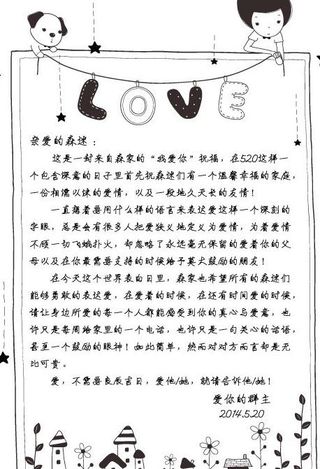 LOVE
亲爱的森迷：
这是一封来自森家的“我爱你”祝福，在520这样一
个包含深意的日子里首先祝森迷们有一个温馨幸福的家庭，
一份相濡以沫的爱情，以及一段地久天长的友情！
一直想着要用什么样的语言来表达爱这样一个深刻的
字眼，总是会有很多人把爱狭义地定义为爱情，为着爱情
不顾一切飞蛾扑火，却忽略了永远毫无保留的爱着你的父
母以及在你最需要支持的时候给予莫大鼓励的朋友！
在今天这个世界表白日里，森家也希望所有的森迷们
能够勇敢的表达爱，在爱着的时候，在还有时间爱的时候，
请让身边所爱的每一个人都能感受到你的真心与爱意，也
许只是每周给家里的一个电话，也许只是一句关心的话语，
甚至一个鼓励的眼神！如此简单，然而对对方而言却是无
比可贵。
爱，不需要良辰吉日，爱他/她，就请告诉他/她！
爱你的群主
2014.5.20